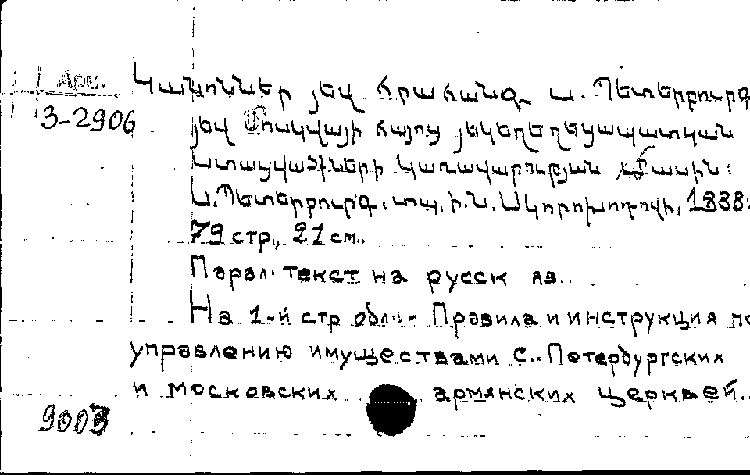 Арм.
Կանոններ յեվ հրահանգ Ս. Պետերբուրգ
3-2906
յեվ Մոսկվայի հայոց յեկեղեցապատկան
ստացվածների կառավարության մասին:
Ս. Պետերբուրգ, տպ. Ի. Ն. Սկորոխոդովի, 1888.
79 стр., 21 см.
Парал. текст на русск яз.
На 1-й стр обл.- Правила и инструкция по
управлению имуществами С.-Петербургских
и московских армянских церквей.
9003